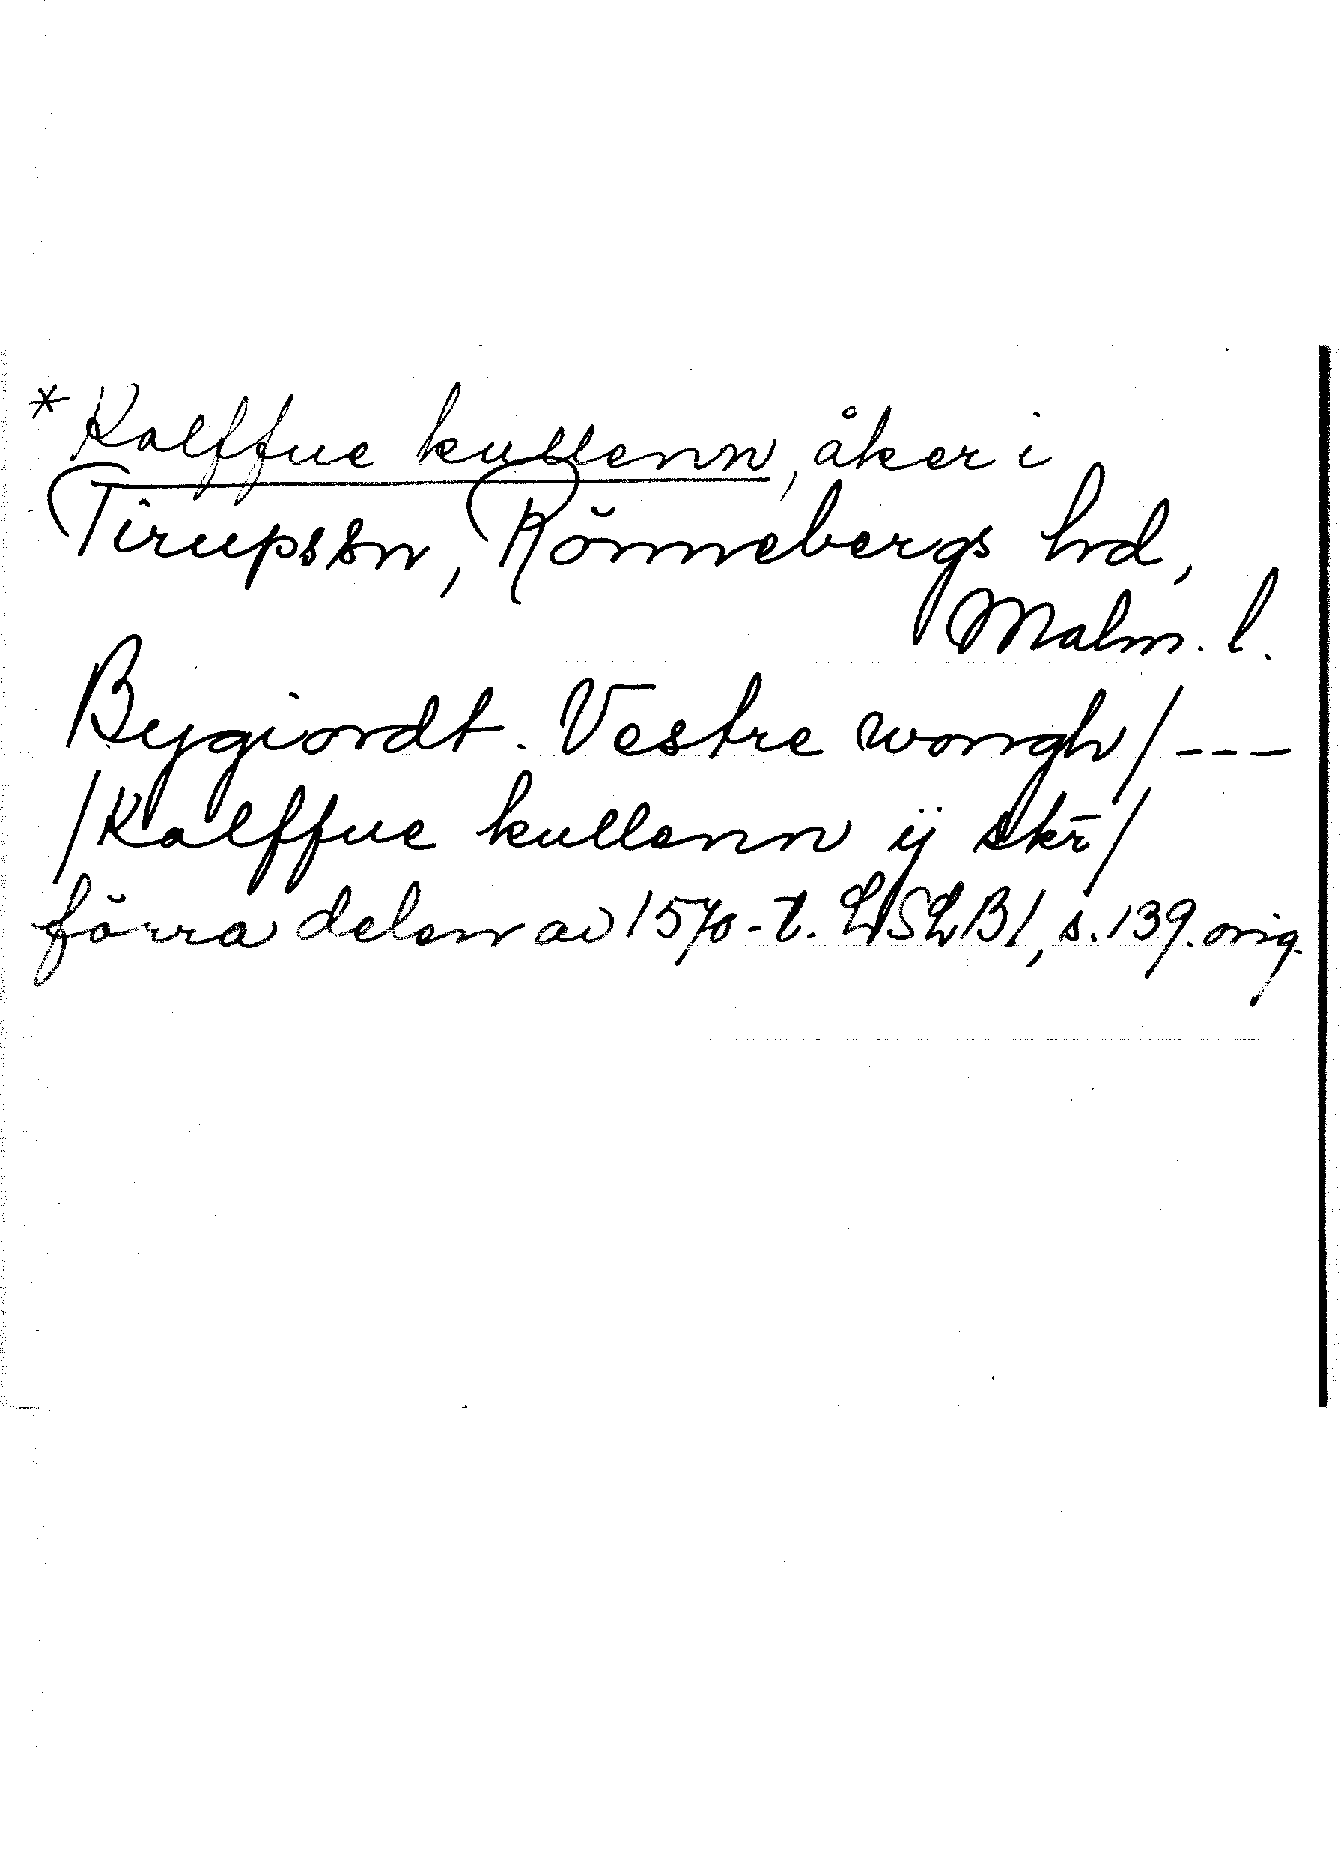 * Kalffue kullenn, åker i
Tirupssn, Rönnebergs hd,
Malm. l.
Bygiordt. Vestre wongh/---
/Kalffue kullenn ij skr̄/
förra delen av 1570-t. LSLB1, s. 139. orig.